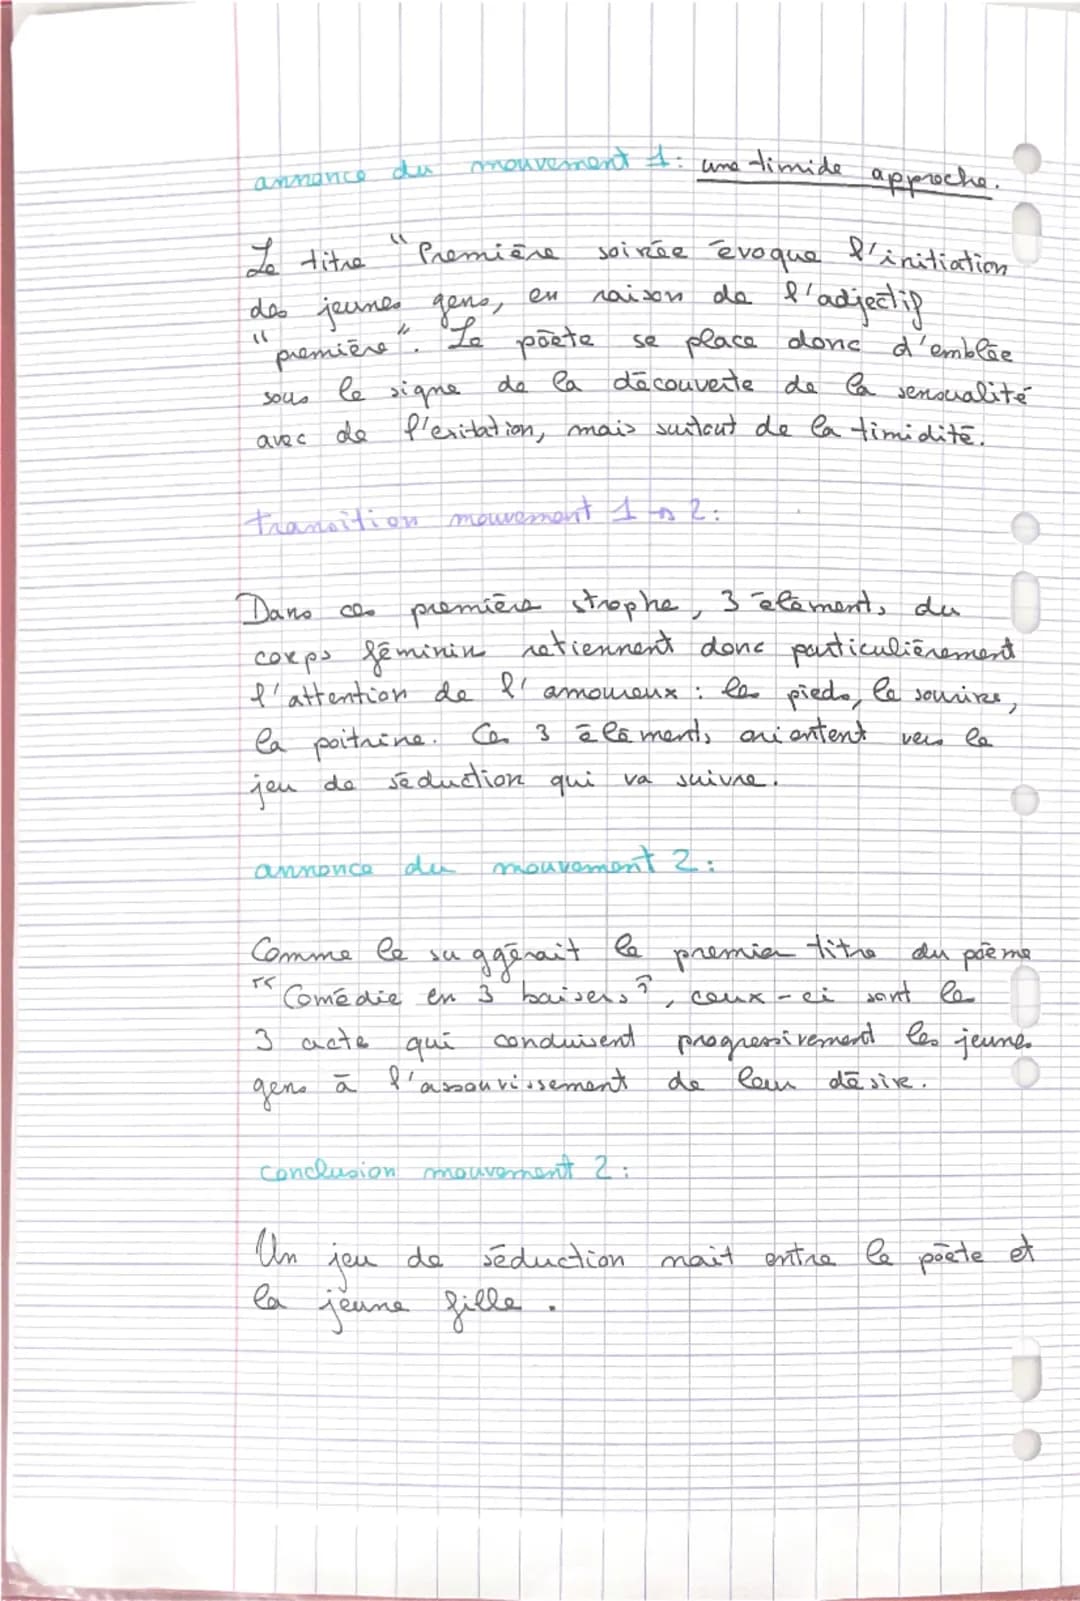 annonce du mouvement 1: une timide approche.
Le titre "Première soirée évoque l'initiation
des jeunes gens, en raison de l'adjectif
"première". Le poète se place donc d'emblée
sous le signe de la découverte de la sensualité
avec de l'exitation, mais surtout de la timidité.
transition mouvement 1 → 2:
Dans ces première strophe, 3 éléments du
corps féminin retiennent donc particulièrement
l'attention de l'amoureux : les pieds, le sourire,
la poitrine. Ces 3 éléments orientent vers le
jeu de séduction qui va suivre.
annonce du mouvement 2:
Comme le suggérait le premier titre du poème
"Comédie en 3 baisers", ceux-ci sont le
3 acte qui conduisent progressivement les jeunes
gens à l'assouvissement de leur désire.
conclusion mouvement 2:
Un jeu de séduction nait entre le poète et
la jeune fille.